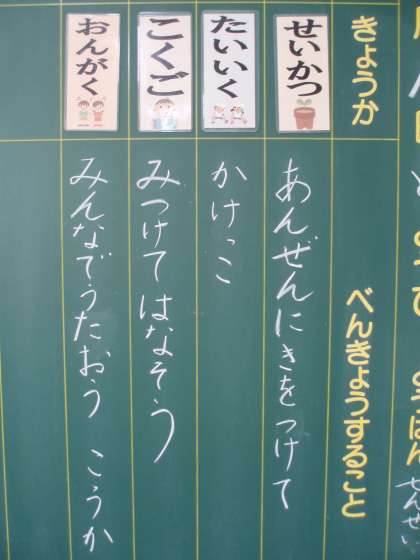 きょうか
べんきょうすること
せいかつ
あんぜんにきをつけて
たいいく
かけっこ
こくご
みつけてはなそう
おんがく
みんなでうたおう こうか